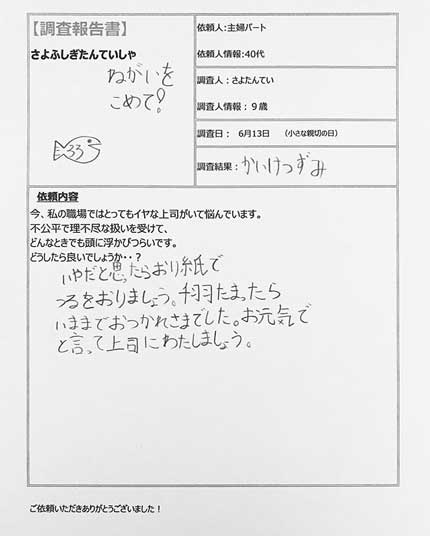 【調査報告書】
さよふしぎたんていしゃ
ねがいを
こめて!
33
依頼人:主婦パート
依頼人情報:40代
調査人:さよたんてい
調査人情報:9歳
調査日: 6月13日 (小さな親切の日)
調査結果:かいけつずみ
依頼内容
今、私の職場ではとってもイヤな上司がいて悩んでいます。
不公平で理不尽な扱いを受けて、
どんなときでも頭に浮かびつらいです。
どうしたら良いでしょうか・・?
いやだと思ったらおり紙で
つるをおりましょう。千羽たまったら
いままでおつかれさまでした。お元気で
と言って上司にわたしましょう。
ご依頼いただきありがとうございました!